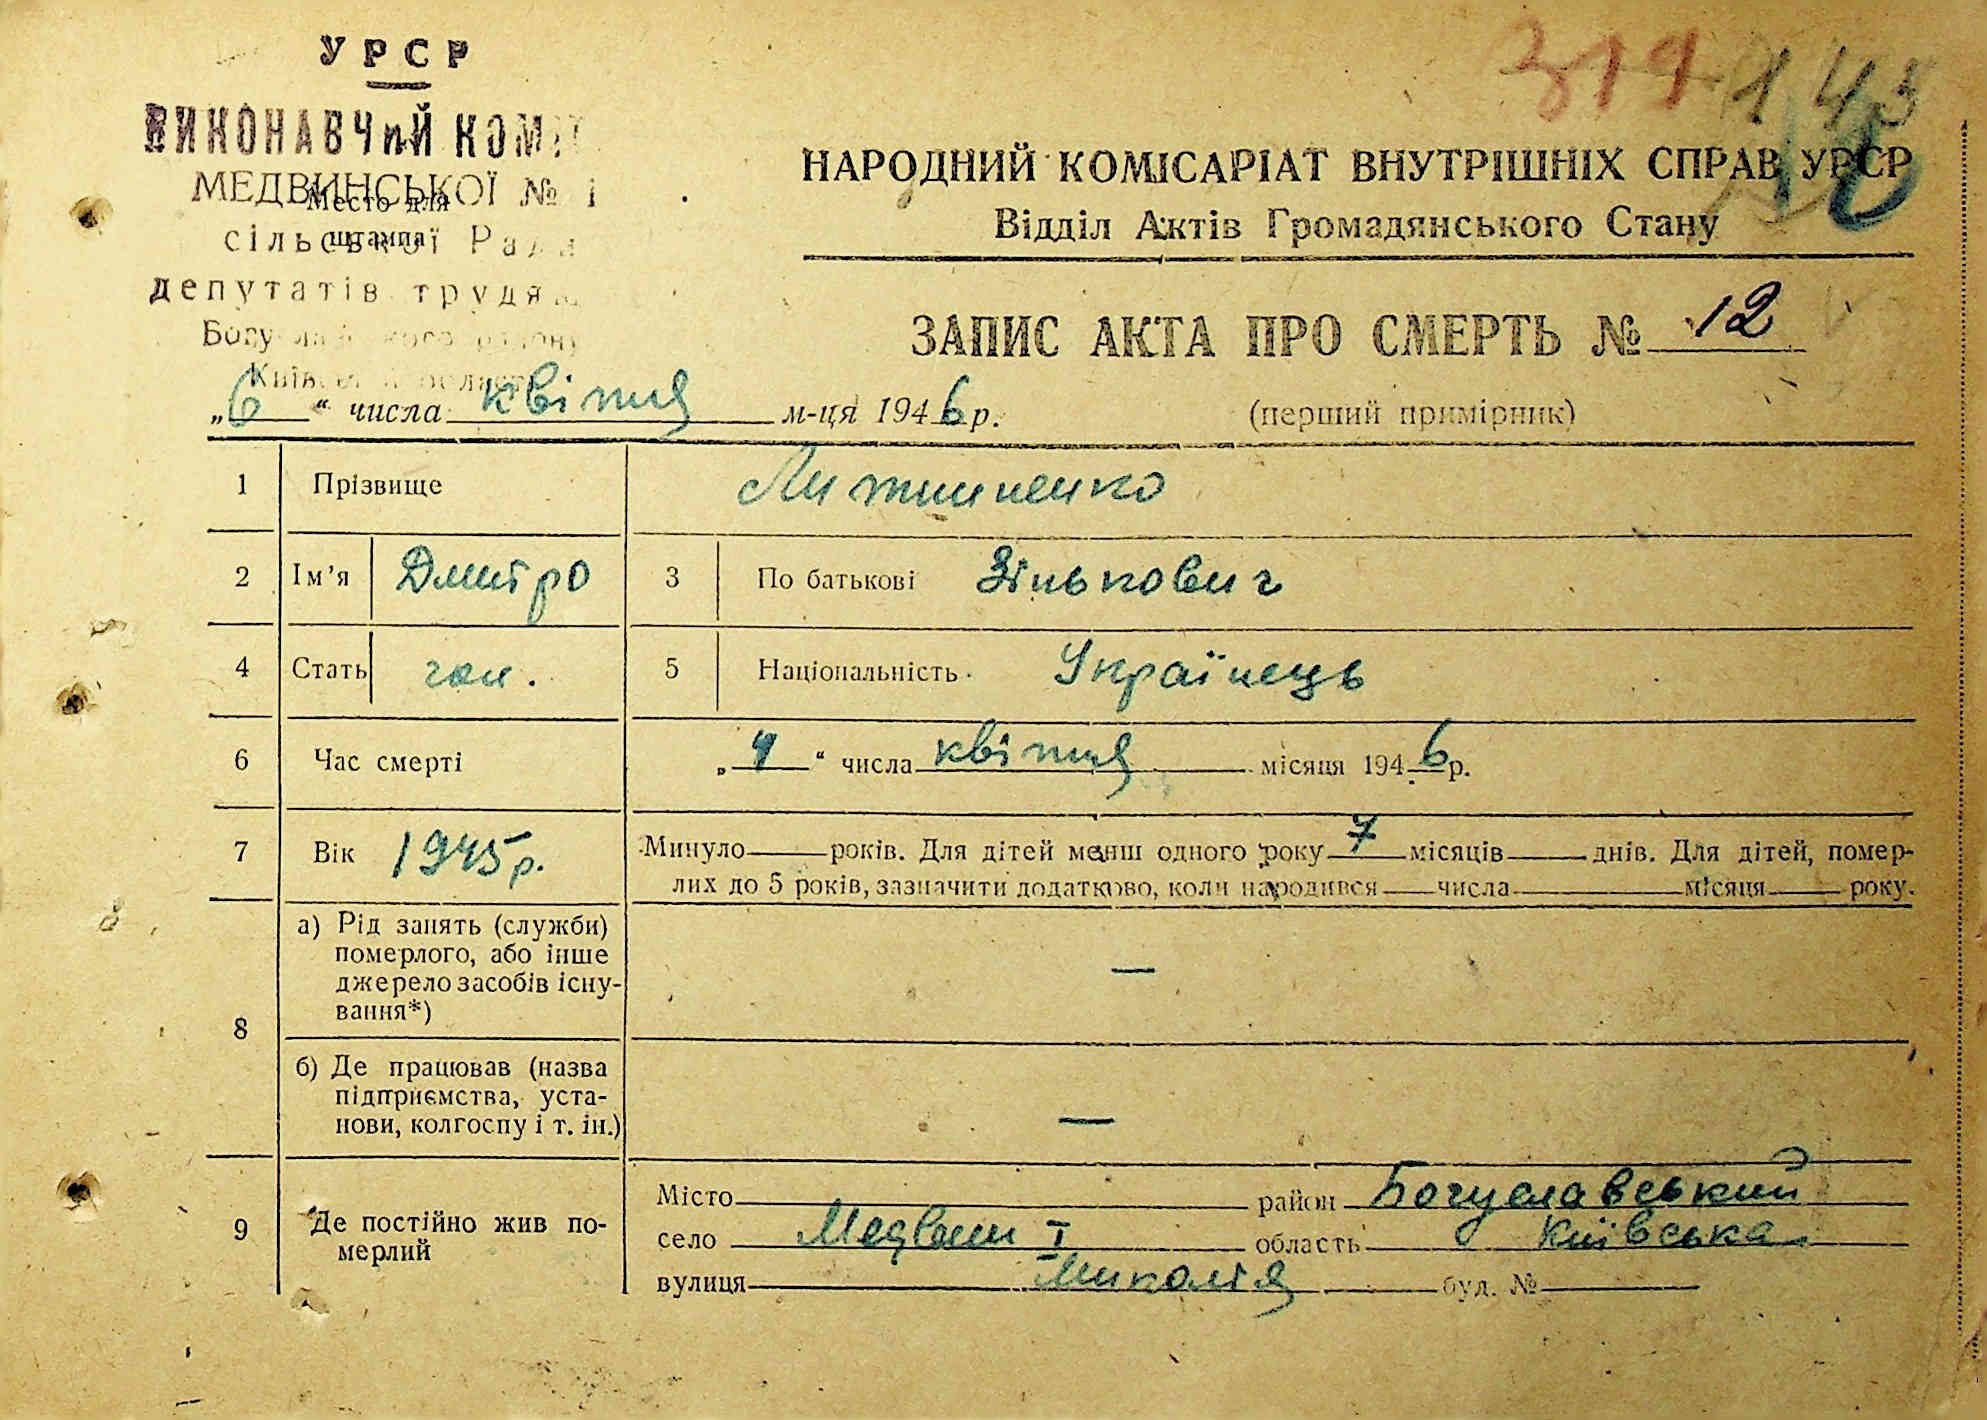 УРСР
ВИКОНАВЧИЙ КОМІ
МЕДВИНСЬКОЇ № 1
Место для
штампа
сільської Ради
депутатів трудя
319 143
НАРОДНИЙ КОМІСАРІАТ ВНУТРІШНІХ СПРАВ УРСР
Відділ Актів Громадянського Стану
ЗАПИС АКТА ПРО СМЕРТЬ № 12
„6“ числа квітня м-ця 1946 р.
(перший примірник)
1 Прізвище Литвиненко
2 Ім’я Дмитро 3 По батькові Зінькович
4 Стать чол. 5 Національність Українець
6 Час смерті „4“ числа квітня місяця 1946 р.
7 Вік 1945 р. Минуло років. Для дітей менш одного року 7 місяців днів. Для дітей, помер-
лих до 5 років, зазначити додатково, коли народився числа місяця року.
8 а) Рід занять (служби)
померлого, або інше
джерело засобів існу-
вання*) —
б) Де працював (назва
підприємства, уста-
нови, колгоспу і т. ін.) —
9 Де постійно жив по-
мерлий
Місто район Богуславський
село Медвин I область Київська
вулиця буд. №